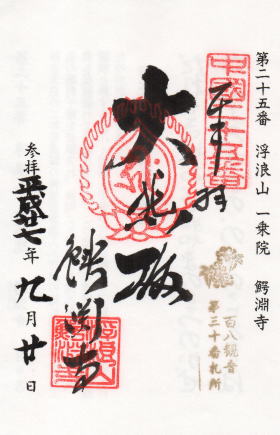 第二十五番　浮浪山　一乗院　鰐淵寺
中國二十五番
百八観音
第三十番札所
千手
大悲殿
鰐渕寺
参拝　平成廿七年　九月廿日